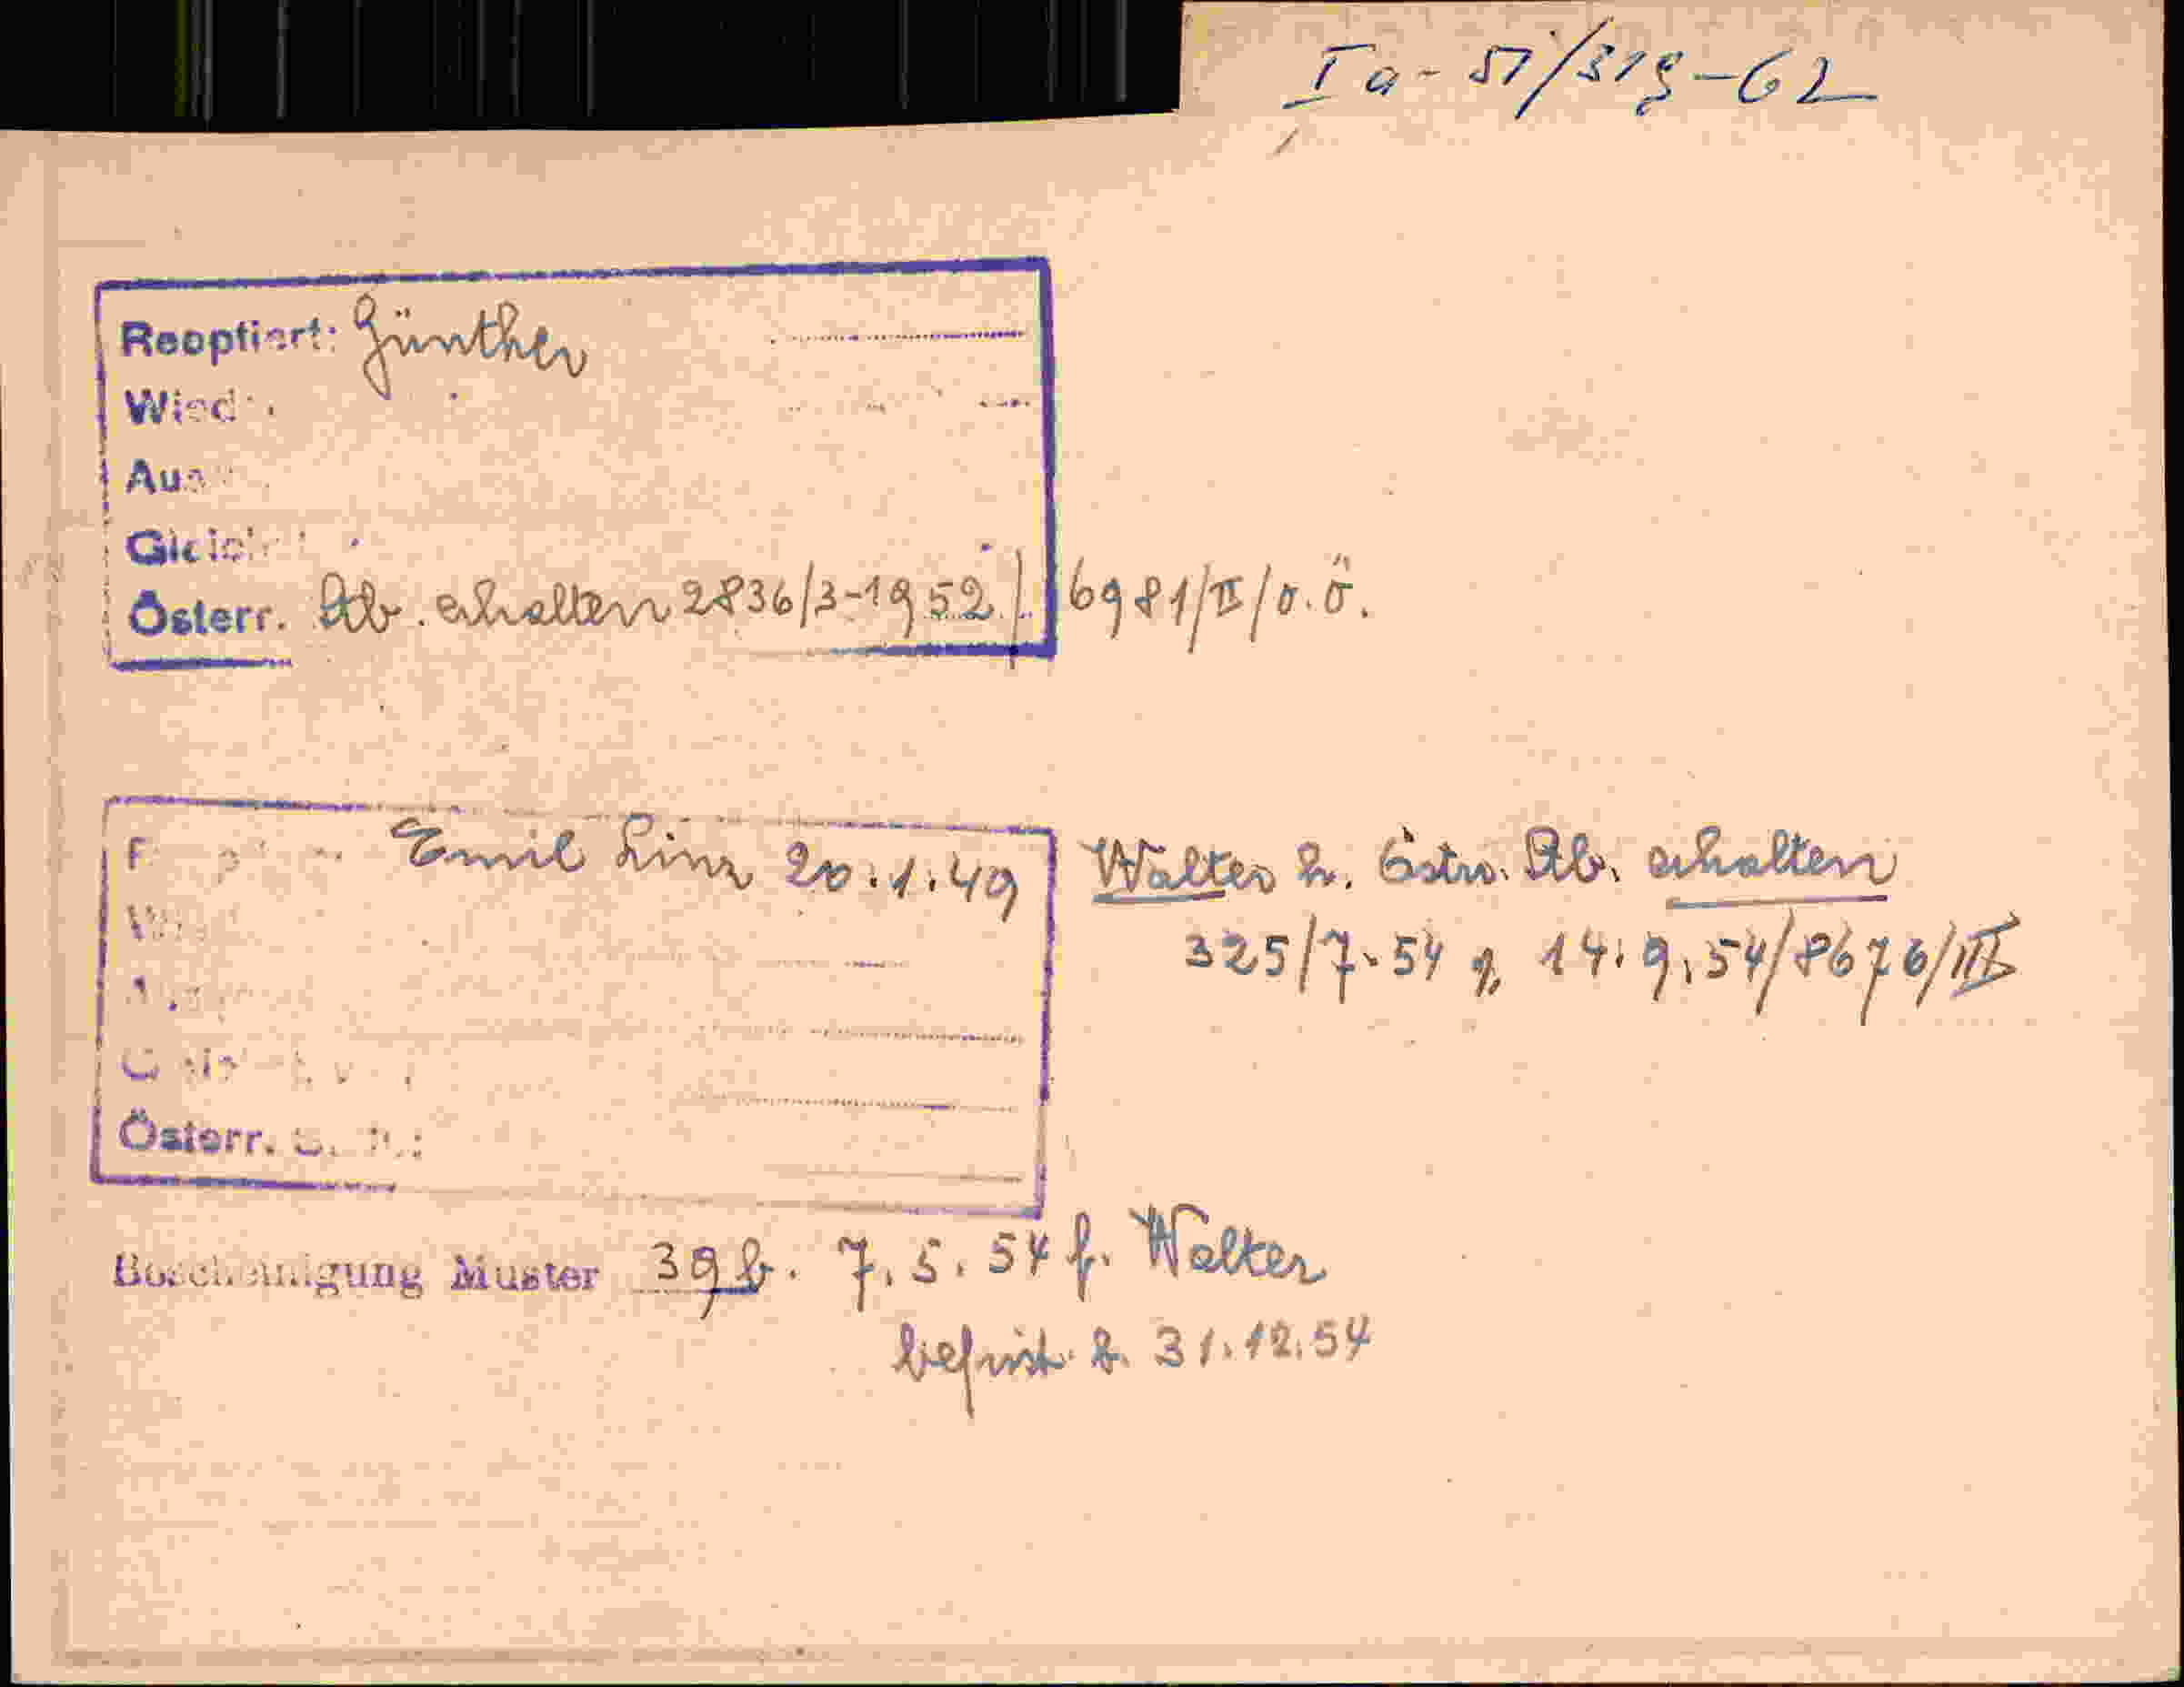 Ia - 51/319-62
Reoptiert: Günther
Wied
Aus
Gleich
Österr. Stb. erhalten 2836/3-1952/. 6981/II/o.ö.
Emil Linz 20.1.49
Walter h. Östr. Stb. erhalten
325/7-54 v. 14.9.54/8676/III
Österr.
Bescheinigung Muster 39 b. 7.5.54 f. Walter
befrist. b. 31.12.54